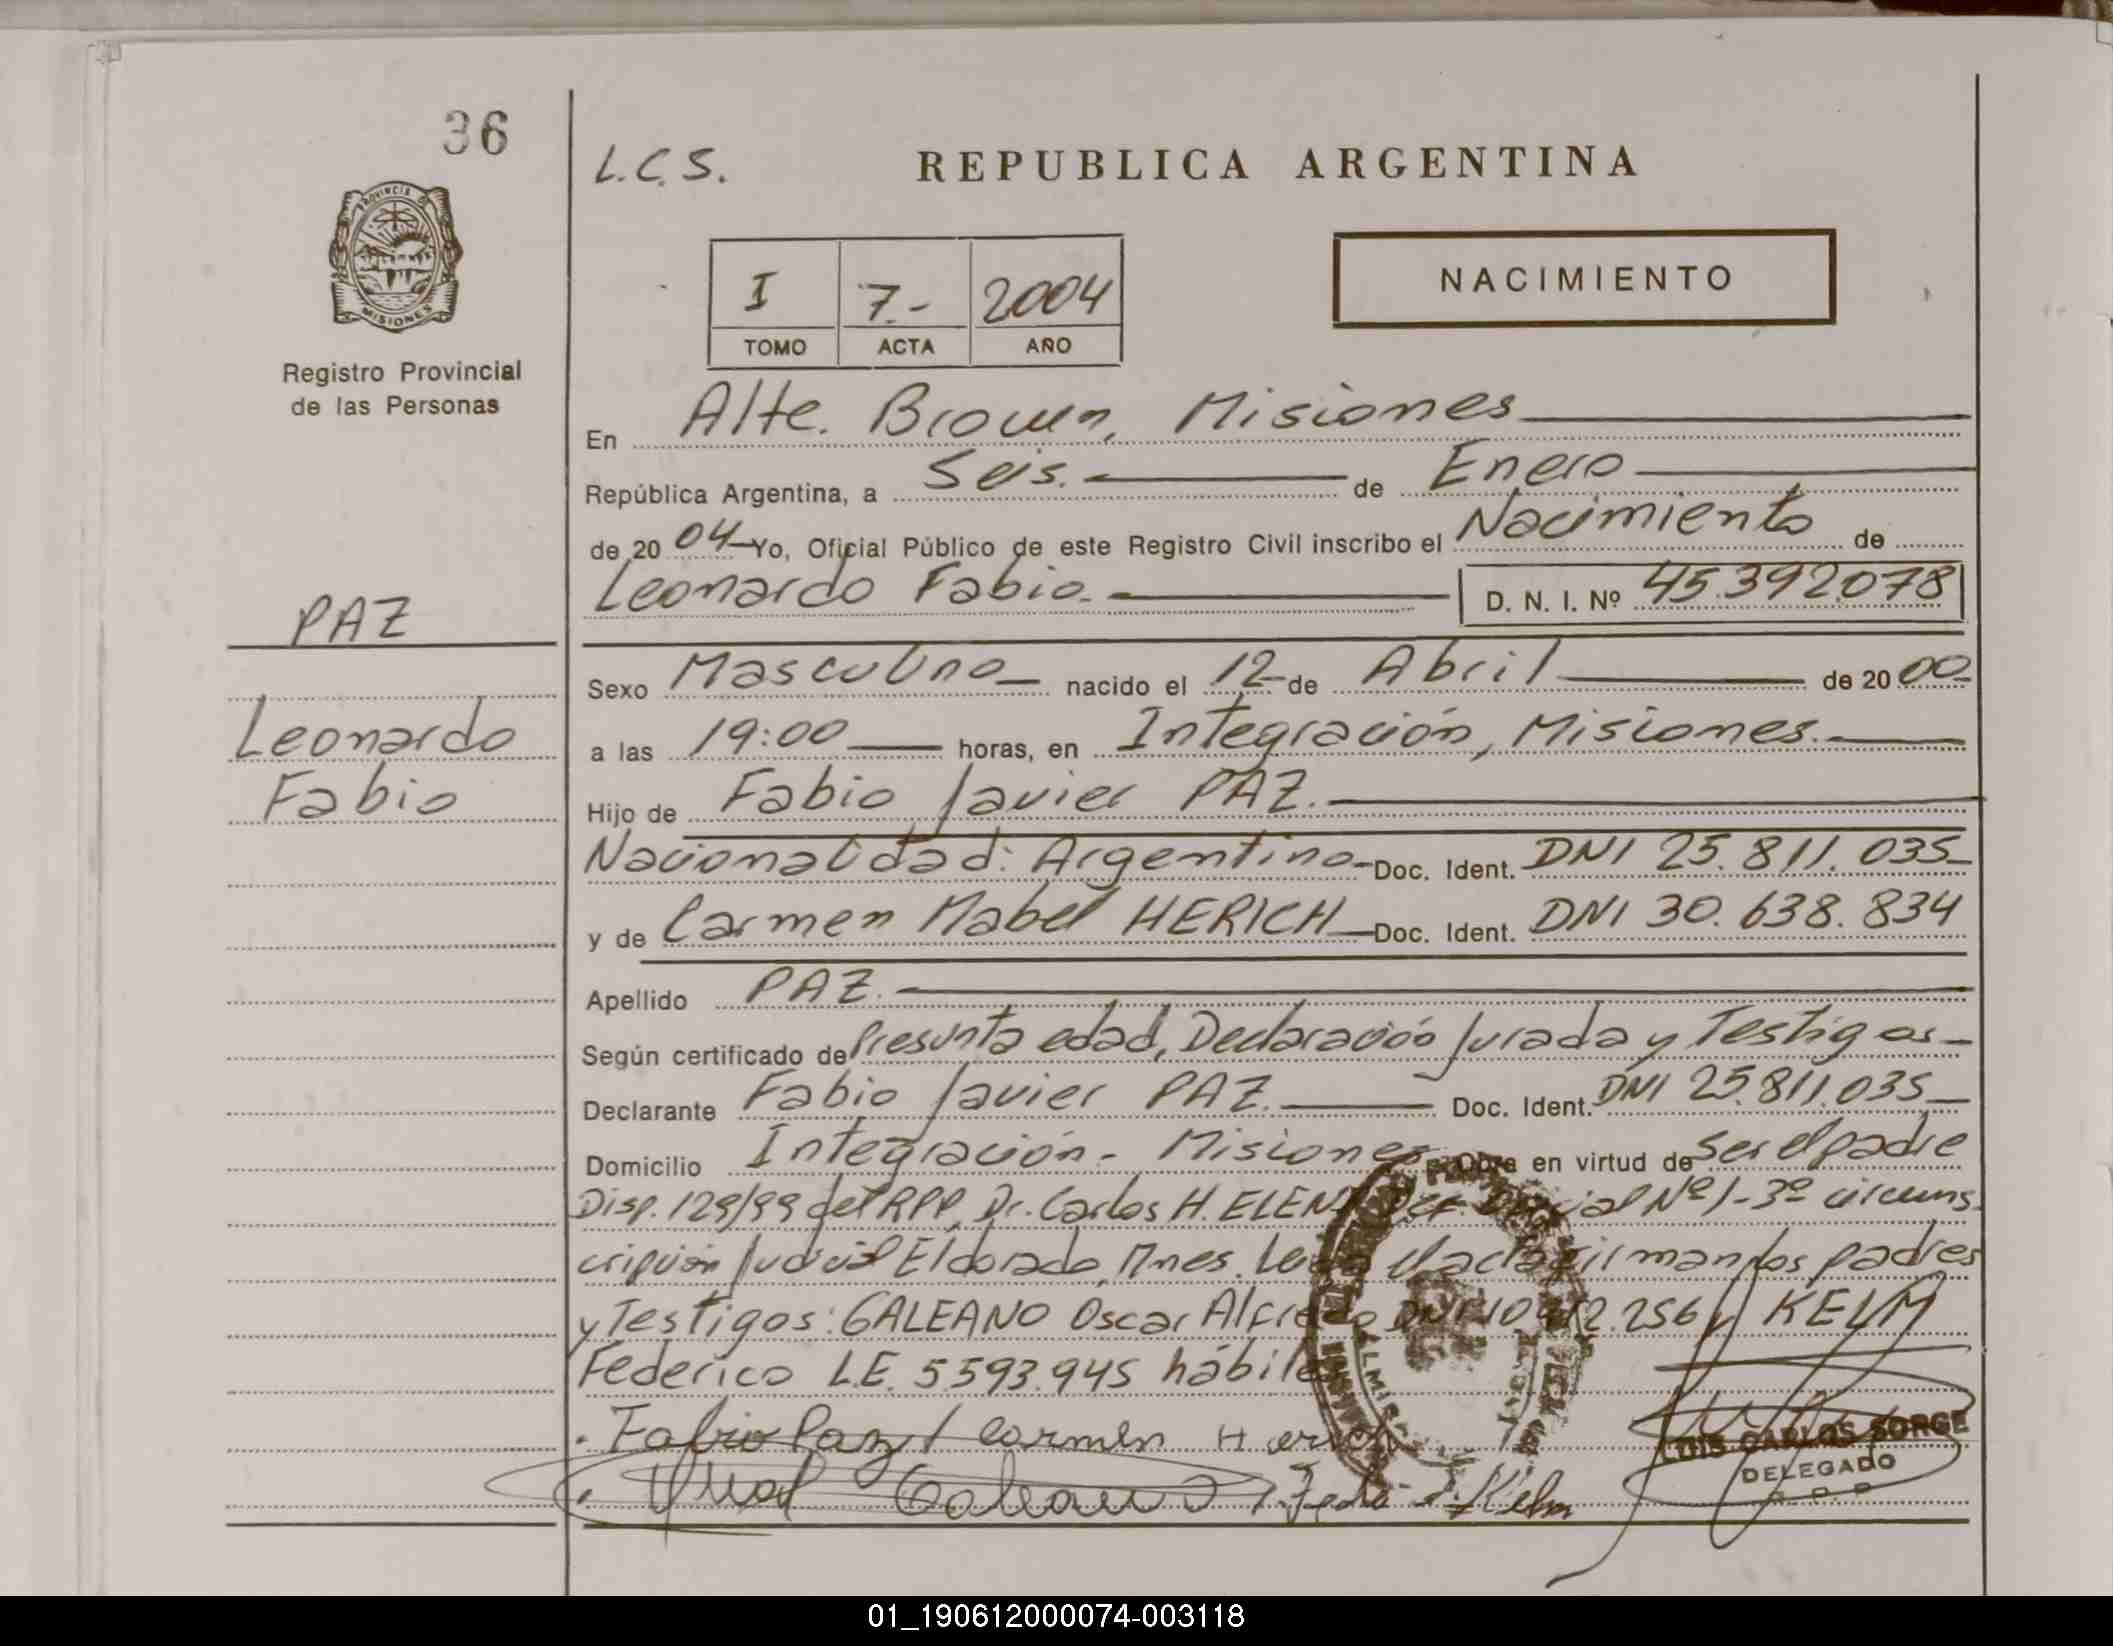 36
L.C.S.
REPUBLICA ARGENTINA
PROVINCIA DE
MISIONES
NACIMIENTO
I 7.- 2004
TOMO ACTA AÑO
Registro Provincial
de las Personas
En Alte. Brown, Misiones
República Argentina, a Seis. de Enero
de 2004 Yo, Oficial Público de este Registro Civil inscribo el Nacimiento de
Leonardo Fabio. D. N. I. Nº 45.392.078
PAZ
Leonardo
Fabio
Sexo Masculino nacido el 12 de Abril de 2000
a las 19:00 horas, en Integración, Misiones.
Hijo de Fabio Javier PAZ.
Nacionalidad: Argentino Doc. Ident. DNI 25.811.035
y de Carmen Mabel HERICH Doc. Ident. DNI 30.638.834
Apellido PAZ.
Según certificado de Presunta edad, Declaración Jurada y Testigos
Declarante Fabio Javier PAZ. Doc. Ident. DNI 25.811.035
Domicilio Integración - Misiones Obra en virtud de Ser el padre
Disp. 129/99 del RPP, Dr. Carlos H. Nº 1-3º circuns
cripción Judicial Eldorado, Mnes. firman los padres
y Testigos: GALEANO Oscar Alfredo DNI y KELM
Federico L.E. 5.593.945 hábiles
Fabio Paz / Carmen Herich
Galeano Kelm
LUIS CARLOS SORGE
DELEGADO
01_190612000074-003118